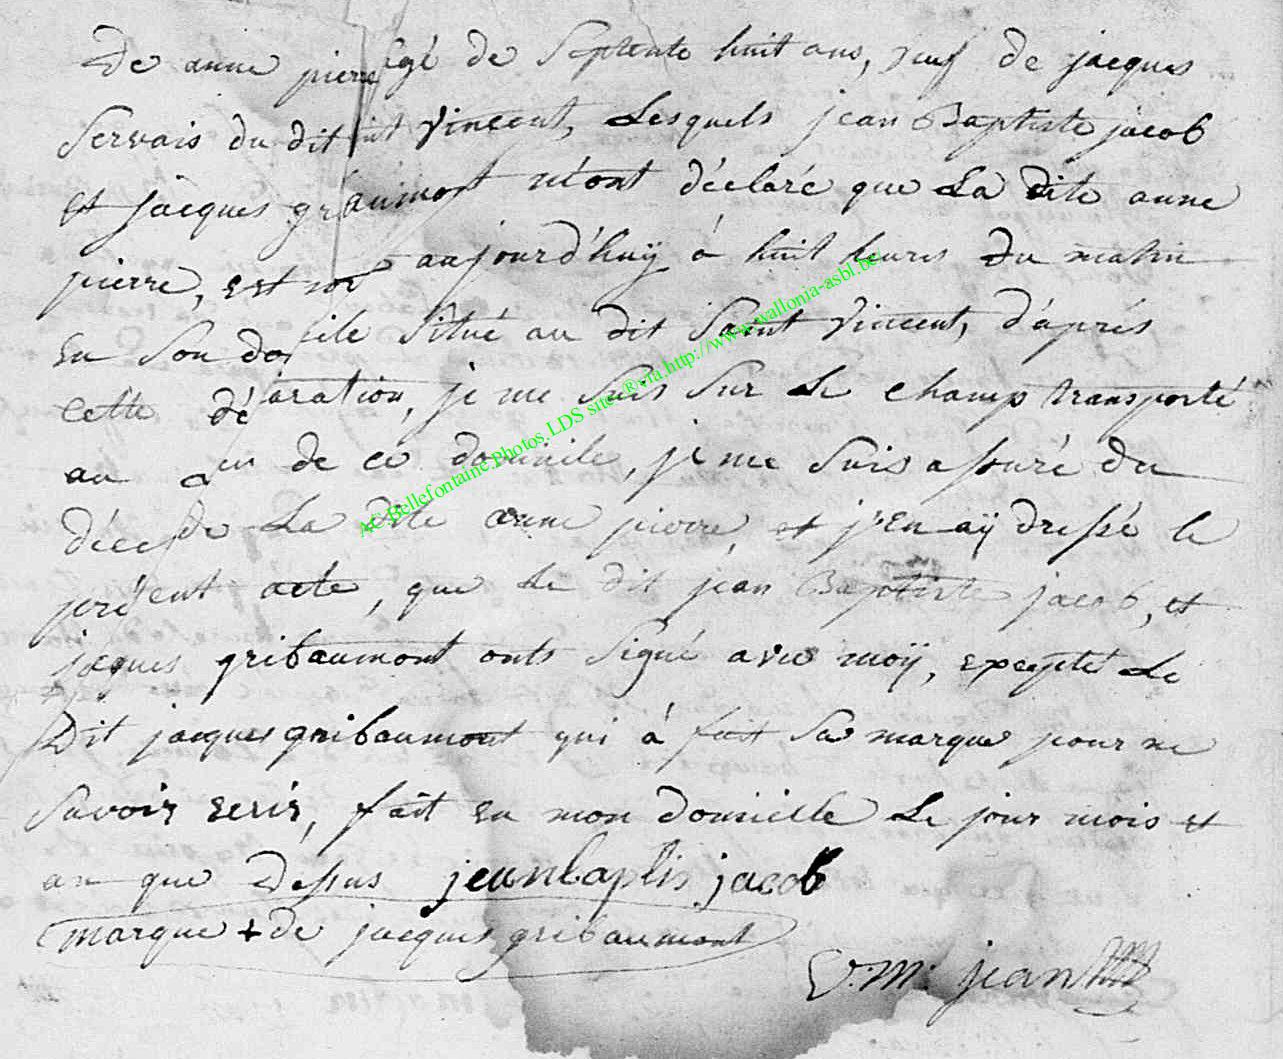 De anne pierre agé de Septente huit ans, veuf de jacques
Servais du dit saint vincent, Lesquels jean Baptiste jacob
et jacques gribaumont m'ont déclaré que La dite anne
pierre, est aujourd'huÿ à huit heures Du matin
En Son domicile situé au dit Saint Vincent, d'après
cette déclaration, je me suis sur Le champ transporté
au de ce domicile, je me suis assuré du
décès de La dite anne pierre, et j'En aÿ dressé le
présent acte, que Le dit jean Baptiste jacob, et
jacques gribaumont onts signé avec moÿ, excepté Le
Dit jacques gribaumont qui à fait Sa marque pour ne
savoir ecrir, fait En mon domicille Le jour mois et
an que Dessus jeanbaptis jacob
marque + de jacques gribaumont
V.M. jean
AC.Bellefontaine.Photos.LDS site ®via.http://www.wallonia-asbl.be